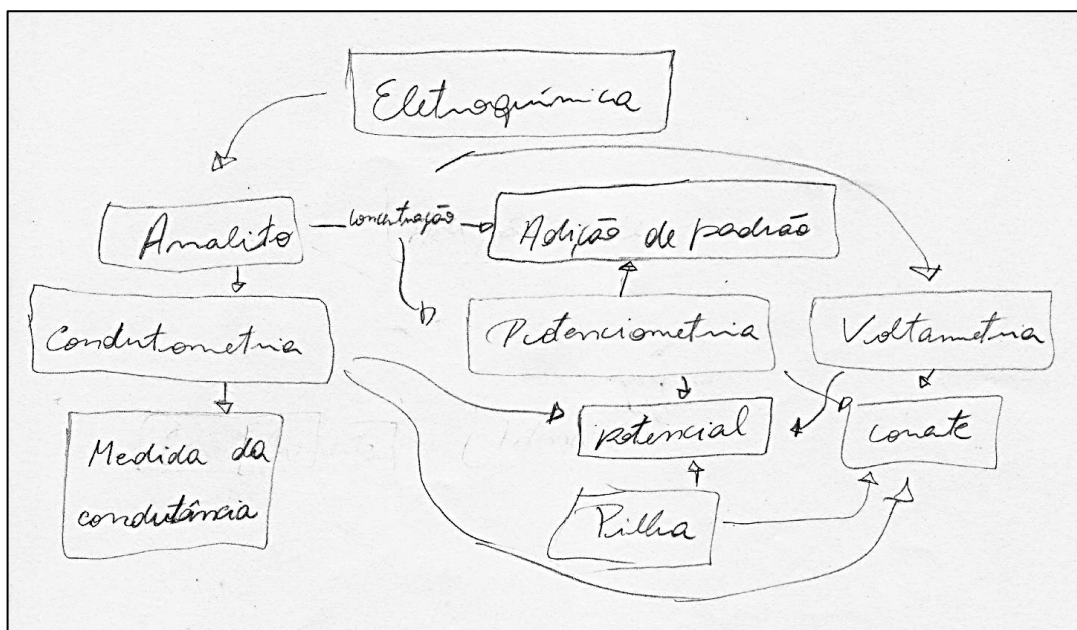 Eletroquímica
Analito
concentração
Adição de padrão
Condutometria
Potenciometria
Voltametria
Medida da
condutância
potencial
Pilha